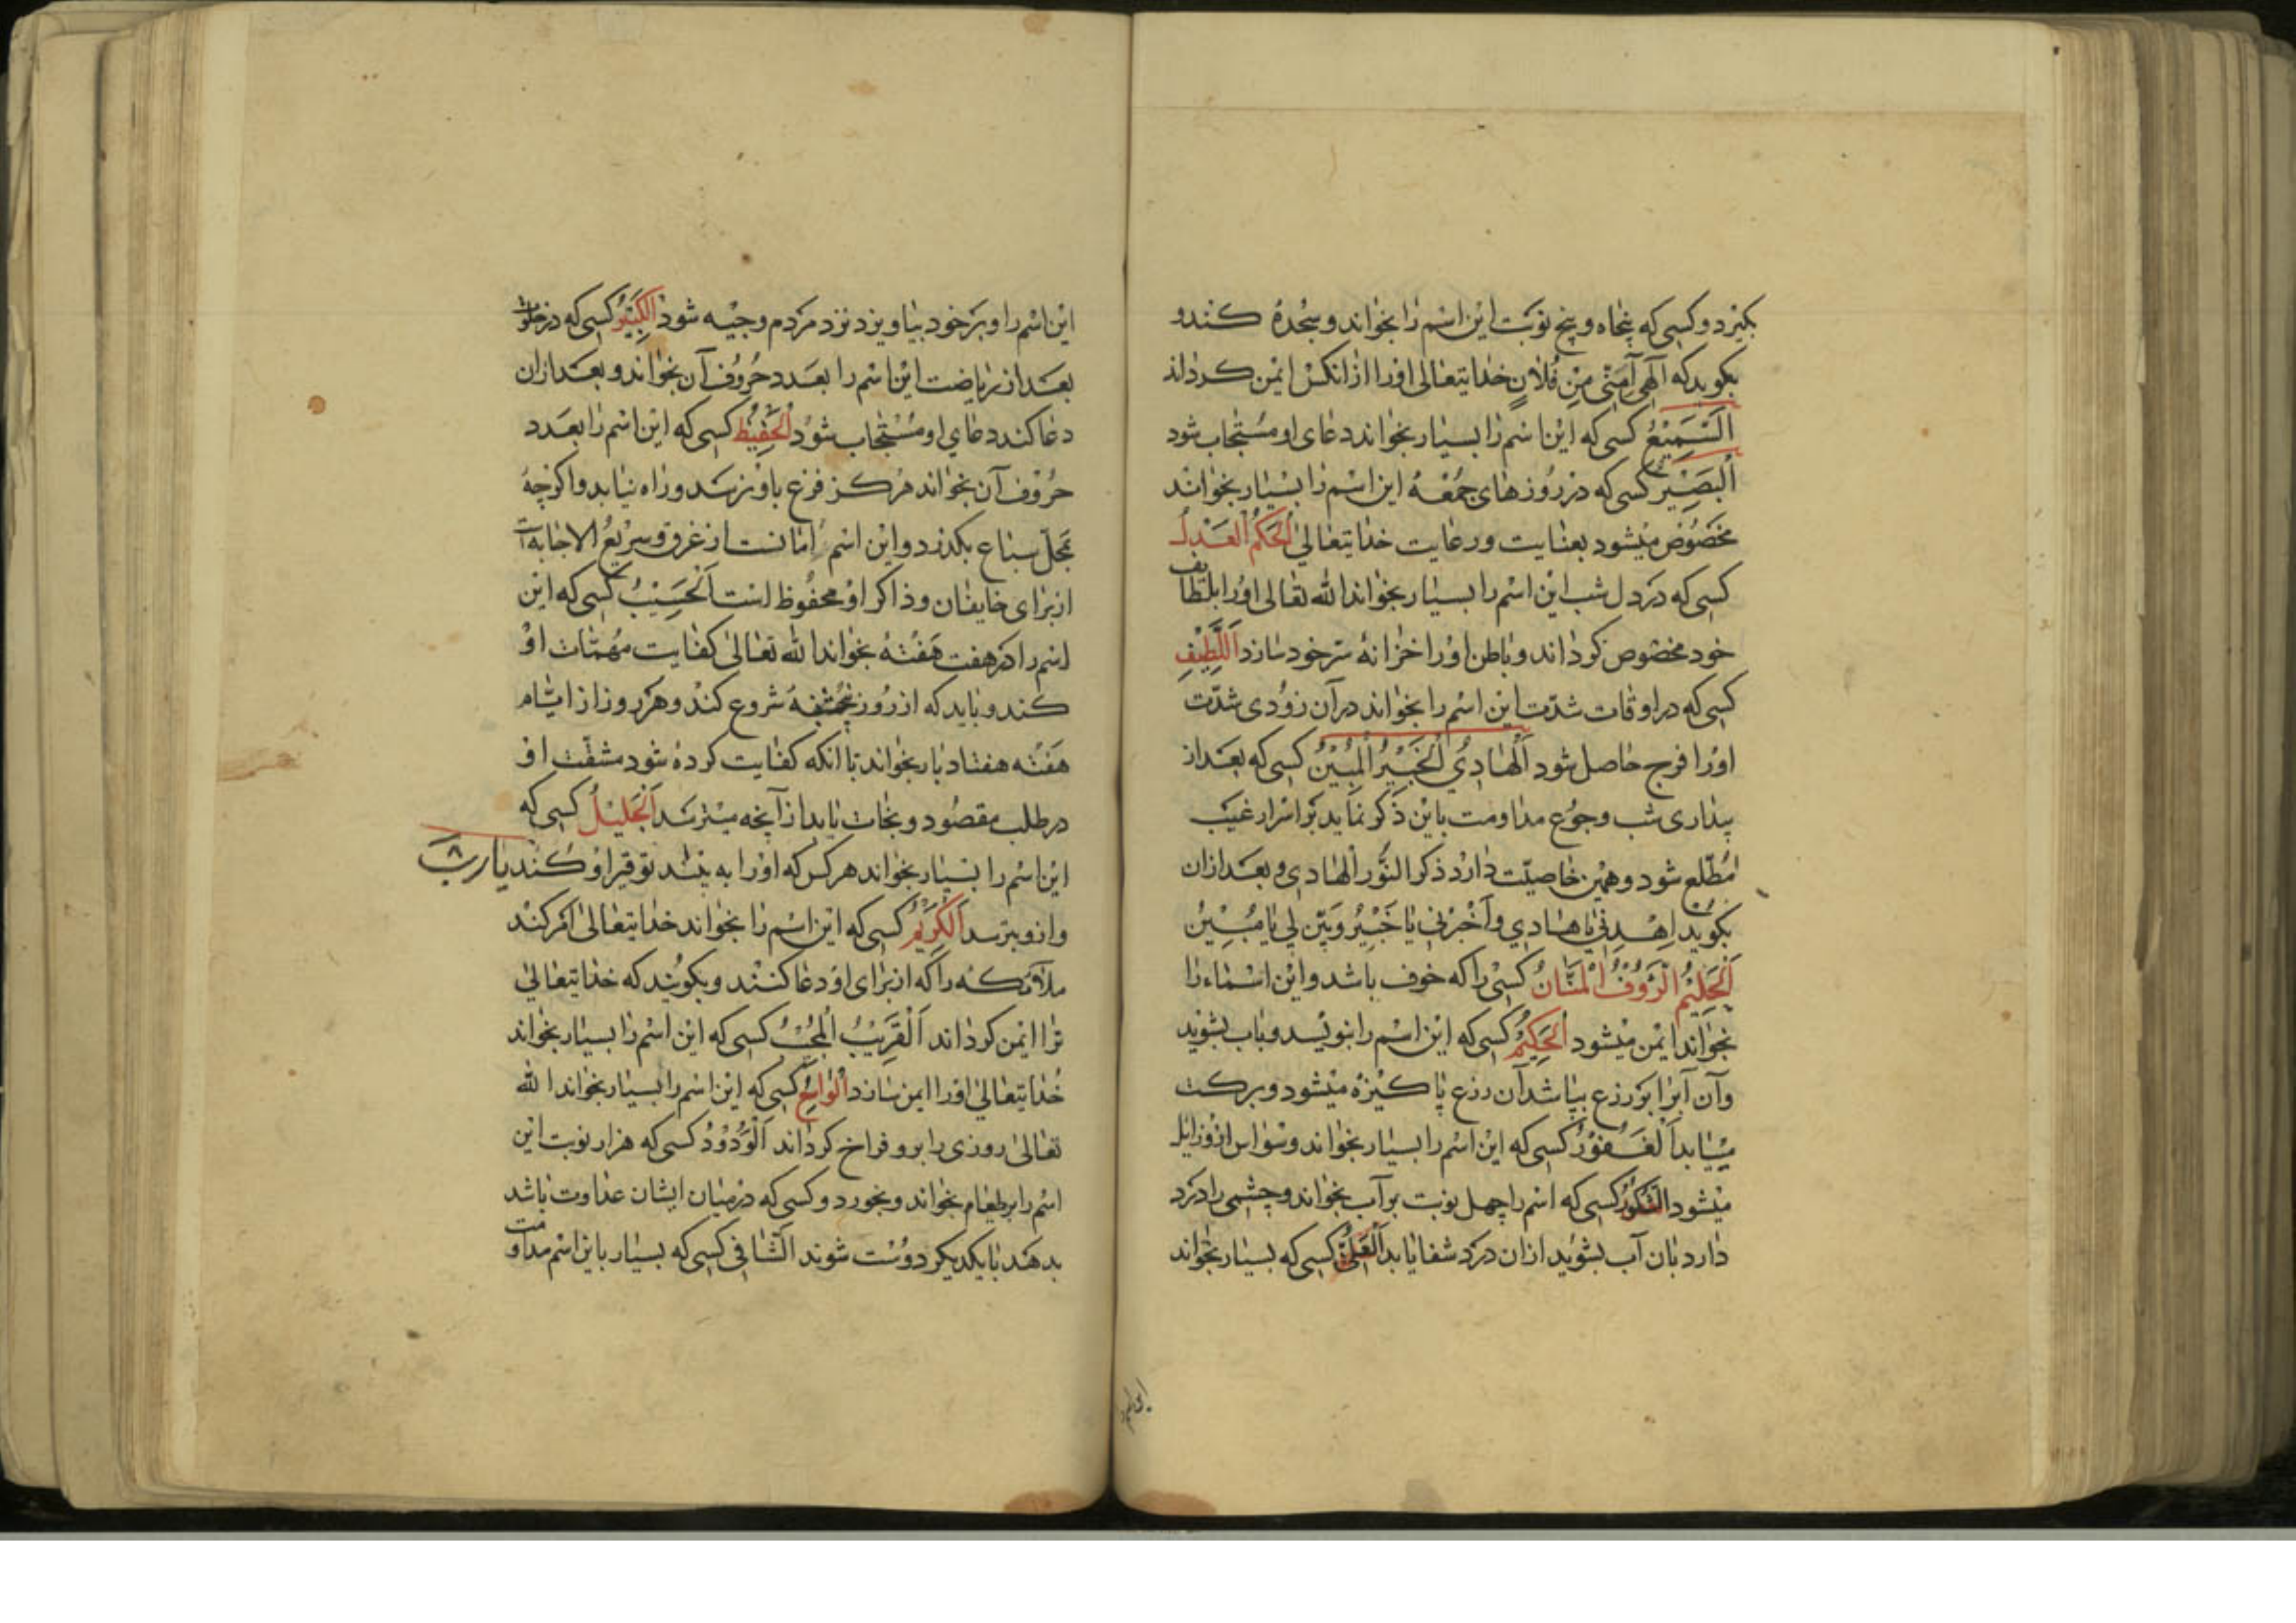 بکیرد و کسی که پنجاه و پنج نوبت این اسم را بخواند و سجده کند و
بکوید که آلهی آمنی من فلان خدایتعالی اورا از انکس ایمن کرداند
السمیع کسی که این اسم را بسیار بخواند دعای او مستجاب شود
البصیر کسی که در روزهای جمعه این اسم را بسیار بخواند
مخصوص میشود بعنایت و رعایت خدایتعالی الحکم العدل
کسی که در دل شب این اسم را بسیار بخواند الله تعالی اورا بلطایف
خود مخصوص کرداند و باطن اورا خزانه سر خود سازد اللطیف
کسی که در اوقات شدت این اسم را بخواند در آن زودی شدت
اورا فرج حاصل شود الهادی الخبیر المبین کسی که بعد از
بیداری شب و جوع مداومت باین ذکر نماید بر اسرار غیب
مطلع شود و همین خاصیت دارد ذکر النور الهادی و بعد ازان
بکوید اهدنی یا هادی و اخبرنی یا خبیر و بین لی یا مبین
الحلیم الرؤف المنان کسی را که خوف باشد و این اسماء را
بخواند ایمن میشود الحکیم کسی که این اسم را بنویسد و باب بشوید
وآن آبرا بر زرع بپاشد آن زرع پاکیزه میشود و برکت
مییابد الغفور کسی که این اسم را بسیار بخواند وسواس ازو زایل
میشود الشکور کسی که اسم را چهل نوبت بر آب بخواند و چشمی را درد
دارد بان آب بشوید ازان درد شفا یابد العلی کسی که بسیار بخواند
این اسم را و بر خود بیاویزد نزد مردم وجیه شود الکبیر کسی که در خلوت
بعد از ریاضت این اسم را بعدد حروف آن بخواند و بعد ازان
دعا کند دعای او مستجاب شود الحفیظ کسی که این اسم را بعدد
حروف آن بخواند هرکز فزع باو نرسد و راه نیابد و اکرچه
بمحل سباع بکذرد و این اسم امانست از غرق و سریع الاجابه است
از برای خایفان و ذاکر او محفوظ است الحسیب کسی که این
اسم را در هفت هفته بخواند الله تعالی کفایت مهمات او
کند و باید که از روز پنجشنبه شروع کند و هر روز از ایام
هفته هفتاد بار بخواند تا انکه کفایت کرده شود مشقت او
در طلب مقصود و نجات یابد از آنچه میترسد الجلیل کسی که
این اسم را بسیار بخواند هر کس که اورا به بیند توقیر او کند یا رب
و ازو بترسد الکریم کسی که این اسم را بخواند خدایتعالی امر کند
ملآئکه را که از برای او دعا کنند و بکویند که خدایتعالی
ترا ایمن کرداند القریب المجیب کسی که این اسم را بسیار بخواند
خدایتعالی اورا ایمن سازد الواسع کسی که این اسم را بسیار بخواند الله
تعالی روزی را برو فراخ کرداند الودود کسی که هزار نوبت این
اسم را بر طعام بخواند و بخورد و کسی که در میان ایشان عداوت باشد
بدهند با یکدیکر دوست شوند الشافی کسی که بسیار باین اسم مداومت